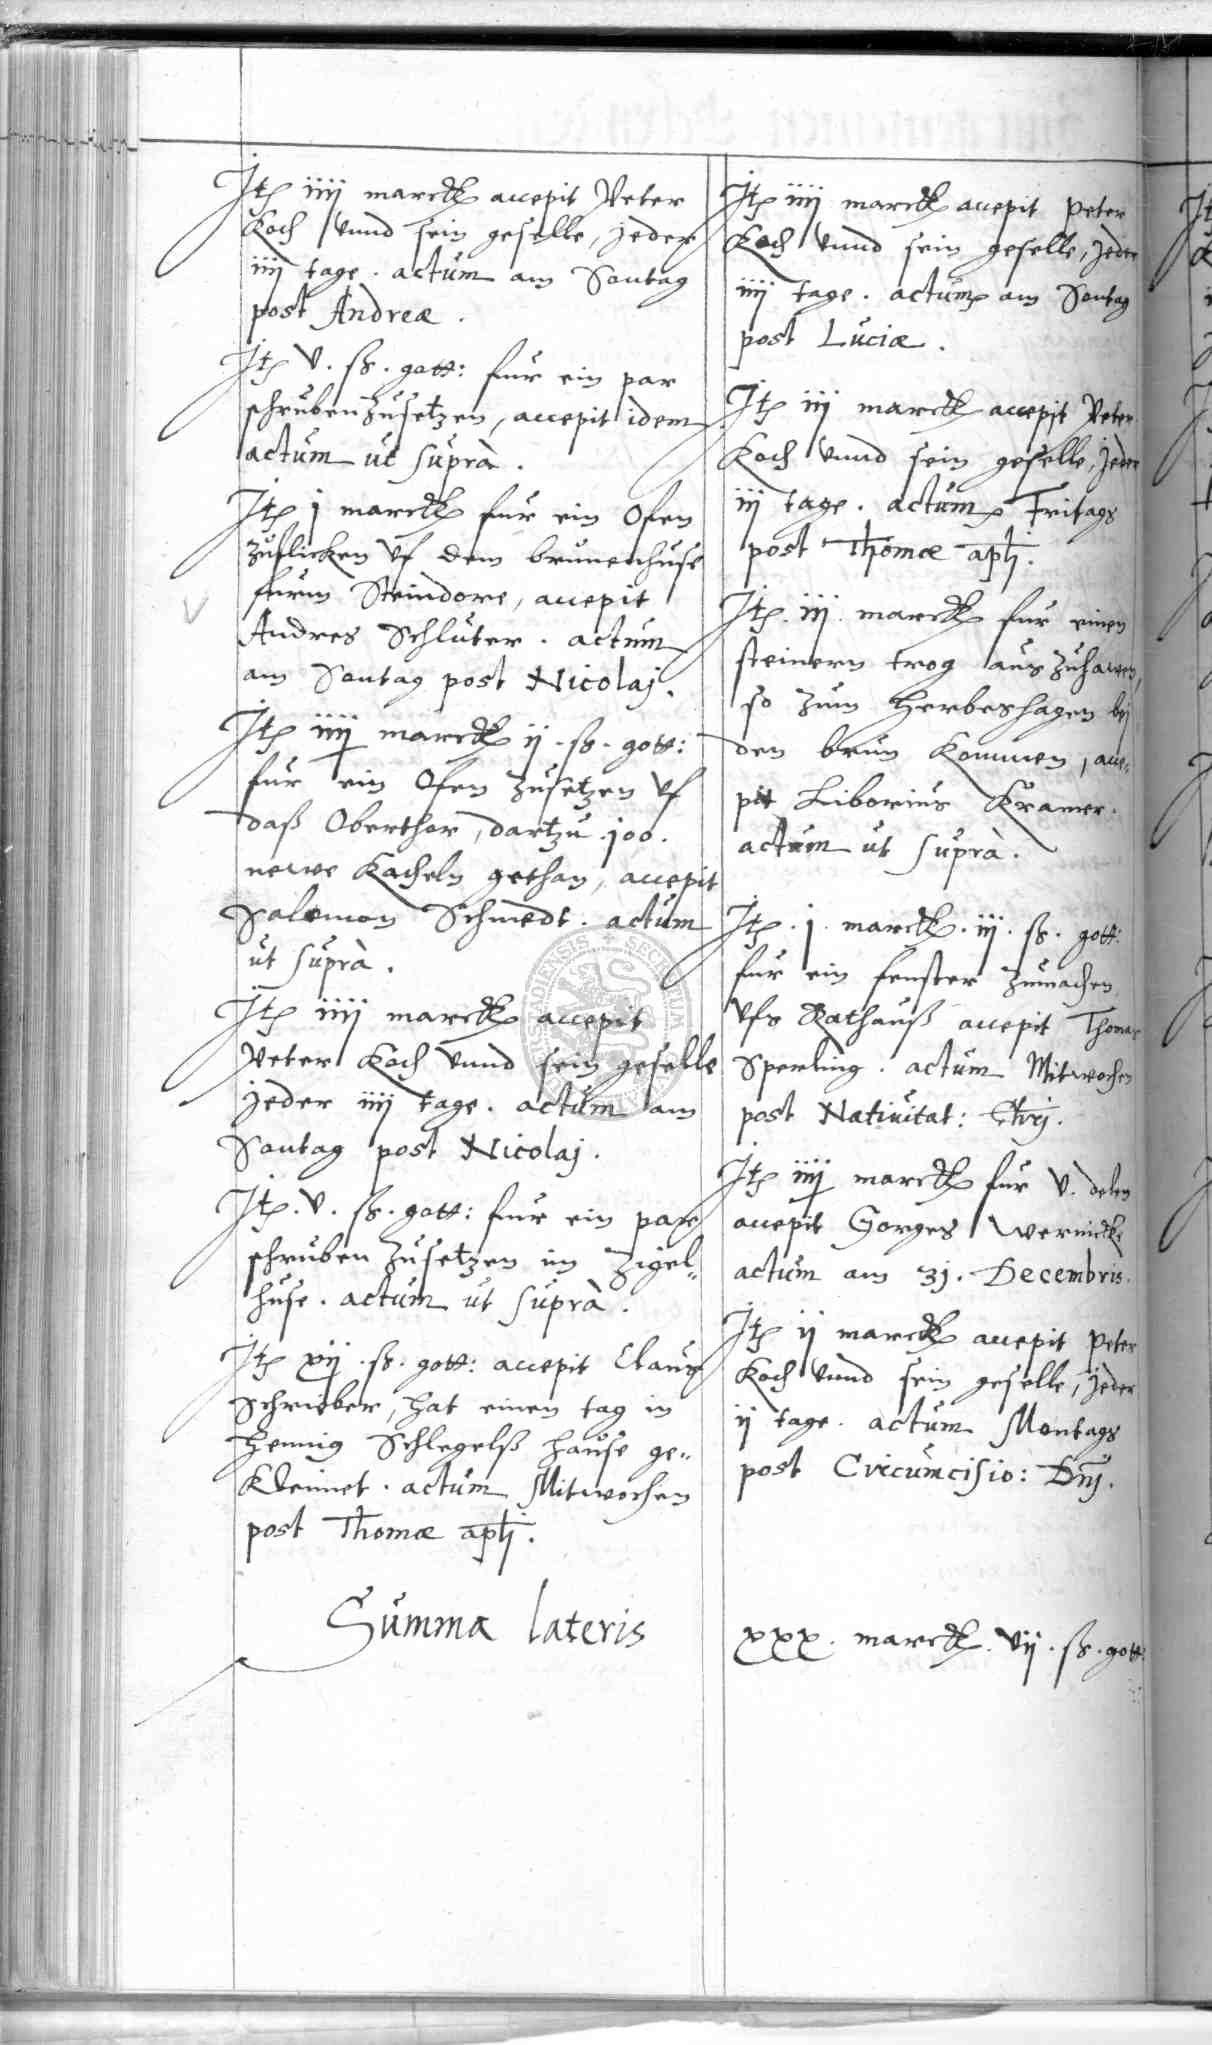 Itē iiij marck accepit Peter
Koch vnnd sein geselle, jeder
iiij tage. actum am Sontag
post Andreæ.
Itē v. ß. gott: fur ein par
schruben zusetzen, accepit idem
actum ut suprà.
Itē j marck fur ein Ofen
zuflicken vf dem brunenhuse
furm Steindore, accepit
Andres Schluter. actum
am Sontag post Nicolaj.
Itē iiij marck ij. ß. gott:
fur ein Ofen zusetzen vf
daß Oberthor, dartzu .100.
newe Kacheln gethan, accepit
Salomon Schmedt. actum
ut suprà.
Itē iiij marck accepit
Peter Koch vnnd sein geselle
jeder iiij tage. actum am
Sontag post Nicolaj.
Itē. v. ß. gott: fur ein par
schruben zusetzen im Zigel=
huse. actum ut suprà.
Itē xij. ß. gott: accepit Claus
Schriber, hat einen tag in
Hennig Schlegelß hause ge=
Kleimet. actum Mitwochen
post Thomæ aplj.
Summa lateris
Itē iiij marck accepit Peter
Koch vnnd sein geselle, jeder
iiij tage. actum am Sontag
post Luciæ.
Itē iij marck accepit Peter
Koch vnnd sein geselle, jeder
iij tage. actum Fritags
post Thomæ aplj.
Itē. iij. marck fur einen
steinern trog auszuhawen,
so zum Herbeshagen bij
den brun kommen, acce=
pit Liborius Kramer.
actum ut suprà.
Itē. j. marck. iij. ß. gott:
fur ein fenster zumachen
vfs Rathauß accepit Thomas
Sperling. actum Mitwochen
post Natiuitat: Chrj.
Itē iiij marck fur v. delen
accepit Gorges Wernicke
actum am 31. Decembris.
Itē ij marck accepit Peter
Koch vnnd sein geselle, jeder
ij tage. actum Montags
post Circumcisio: Dnj.
xxx. marck. vij. ß. gott: